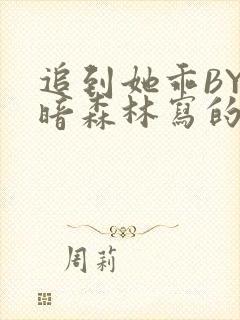 追到她乖BY
暗森林寫的
周莉